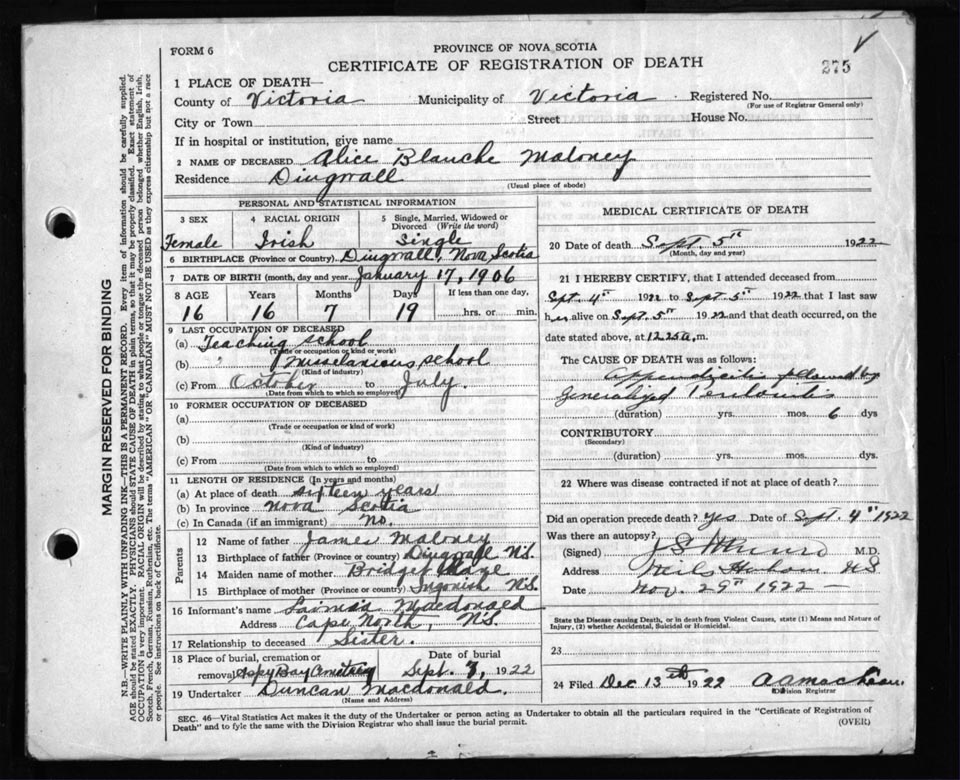 FORM 6
PROVINCE OF NOVA SCOTIA
CERTIFICATE OF REGISTRATION OF DEATH
275
1 PLACE OF DEATH—
County of Victoria Municipality of Victoria Registered No.
(For use of Registrar General only)
City or Town Street House No.
If in hospital or institution, give name
2 NAME OF DECEASED Alice Blanche Maloney
Residence Dingwall
(Usual place of abode)
PERSONAL AND STATISTICAL INFORMATION
3 SEX 4 RACIAL ORIGIN 5 Single, Married, Widowed or Divorced (Write the word)
Female Irish Single
6 BIRTHPLACE (Province or Country) Dingwall, Nova Scotia
7 DATE OF BIRTH (month, day and year) January 17, 1906
8 AGE Years Months Days If less than one day,
16 16 7 19 hrs. or min.
9 LAST OCCUPATION OF DECEASED
(a) Teaching school
(Trade or occupation or kind or work)
(b) " Misselanious school
(Kind of industry)
(c) From October to July.
(Date from which to which so employed)
10 FORMER OCCUPATION OF DECEASED
(a)
(Trade or occupation or kind of work)
(b)
(Kind of industry)
(c) From to
(Date from which to which so employed)
11 LENGTH OF RESIDENCE (In years and months)
(a) At place of death sixteen years
(b) In province Nova Scotia
(c) In Canada (if an immigrant) No.
Parents
12 Name of father James Maloney
13 Birthplace of father (Province or country) Dingwall N.S.
14 Maiden name of mother Bridget
15 Birthplace of mother (Province or country) Ingonish N.S.
16 Informant's name Macdonald
Address Cape North, N.S.
17 Relationship to deceased Sister.
18 Place of burial, cremation or Date of burial
removal Aspy Bay Cemetery Sept. 7, 1922
19 Undertaker Duncan Macdonald.
(Name and Address)
MEDICAL CERTIFICATE OF DEATH
20 Date of death Sept. 5th 1922
(Month, day and year)
21 I HEREBY CERTIFY, that I attended deceased from
Sept. 4th 1922 to Sept. 5th 1922 that I last saw
her alive on Sept. 5th 1922 and that death occurred, on the
date stated above, at 12.25 a, m.
The CAUSE OF DEATH was as follows:
Appendicitis followed by
Generalized Peritonitis
(duration) yrs. mos. 6 dys
CONTRIBUTORY
(Secondary)
(duration) yrs. mos. dys.
22 Where was disease contracted if not at place of death?
Did an operation precede death? yes Date of Sept. 4th 1922
Was there an autopsy?
(Signed) M.D.
Address Neils Harbour N S
Date Nov. 29th 1922
State the Disease causing Death, or in death from Violent Causes, state (1) Means and Nature of
Injury, (2) whether Accidental, Suicidal or Homicidal.
23
24 Filed Dec 13th 1922
Division Registrar
SEC. 46—Vital Statistics Act makes it the duty of the Undertaker or person acting as Undertaker to obtain all the particulars required in the "Certificate of Registration of
Death" and to fyle the same with the Division Registrar who shall issue the burial permit.
(OVER)
MARGIN RESERVED FOR BINDING
N.B.—WRITE PLAINLY WITH UNFADING INK—THIS IS A PERMANENT RECORD. Every item of information should be carefully supplied.
AGE should be stated EXACTLY. PHYSICIANS should STATE CAUSE OF DEATH in plain terms, so that it may be properly classified. Exact statement of
OCCUPATION is very important. RACIAL ORIGIN will be described by stating to what people or tongue the deceased person belonged whether English, Irish,
Scotch, French, German, Russian, Ruthenian, etc. The terms "AMERICAN" OR "CANADIAN" MUST NOT BE USED as they express citizenship but not a race
or people. See instructions on back of Certificate.